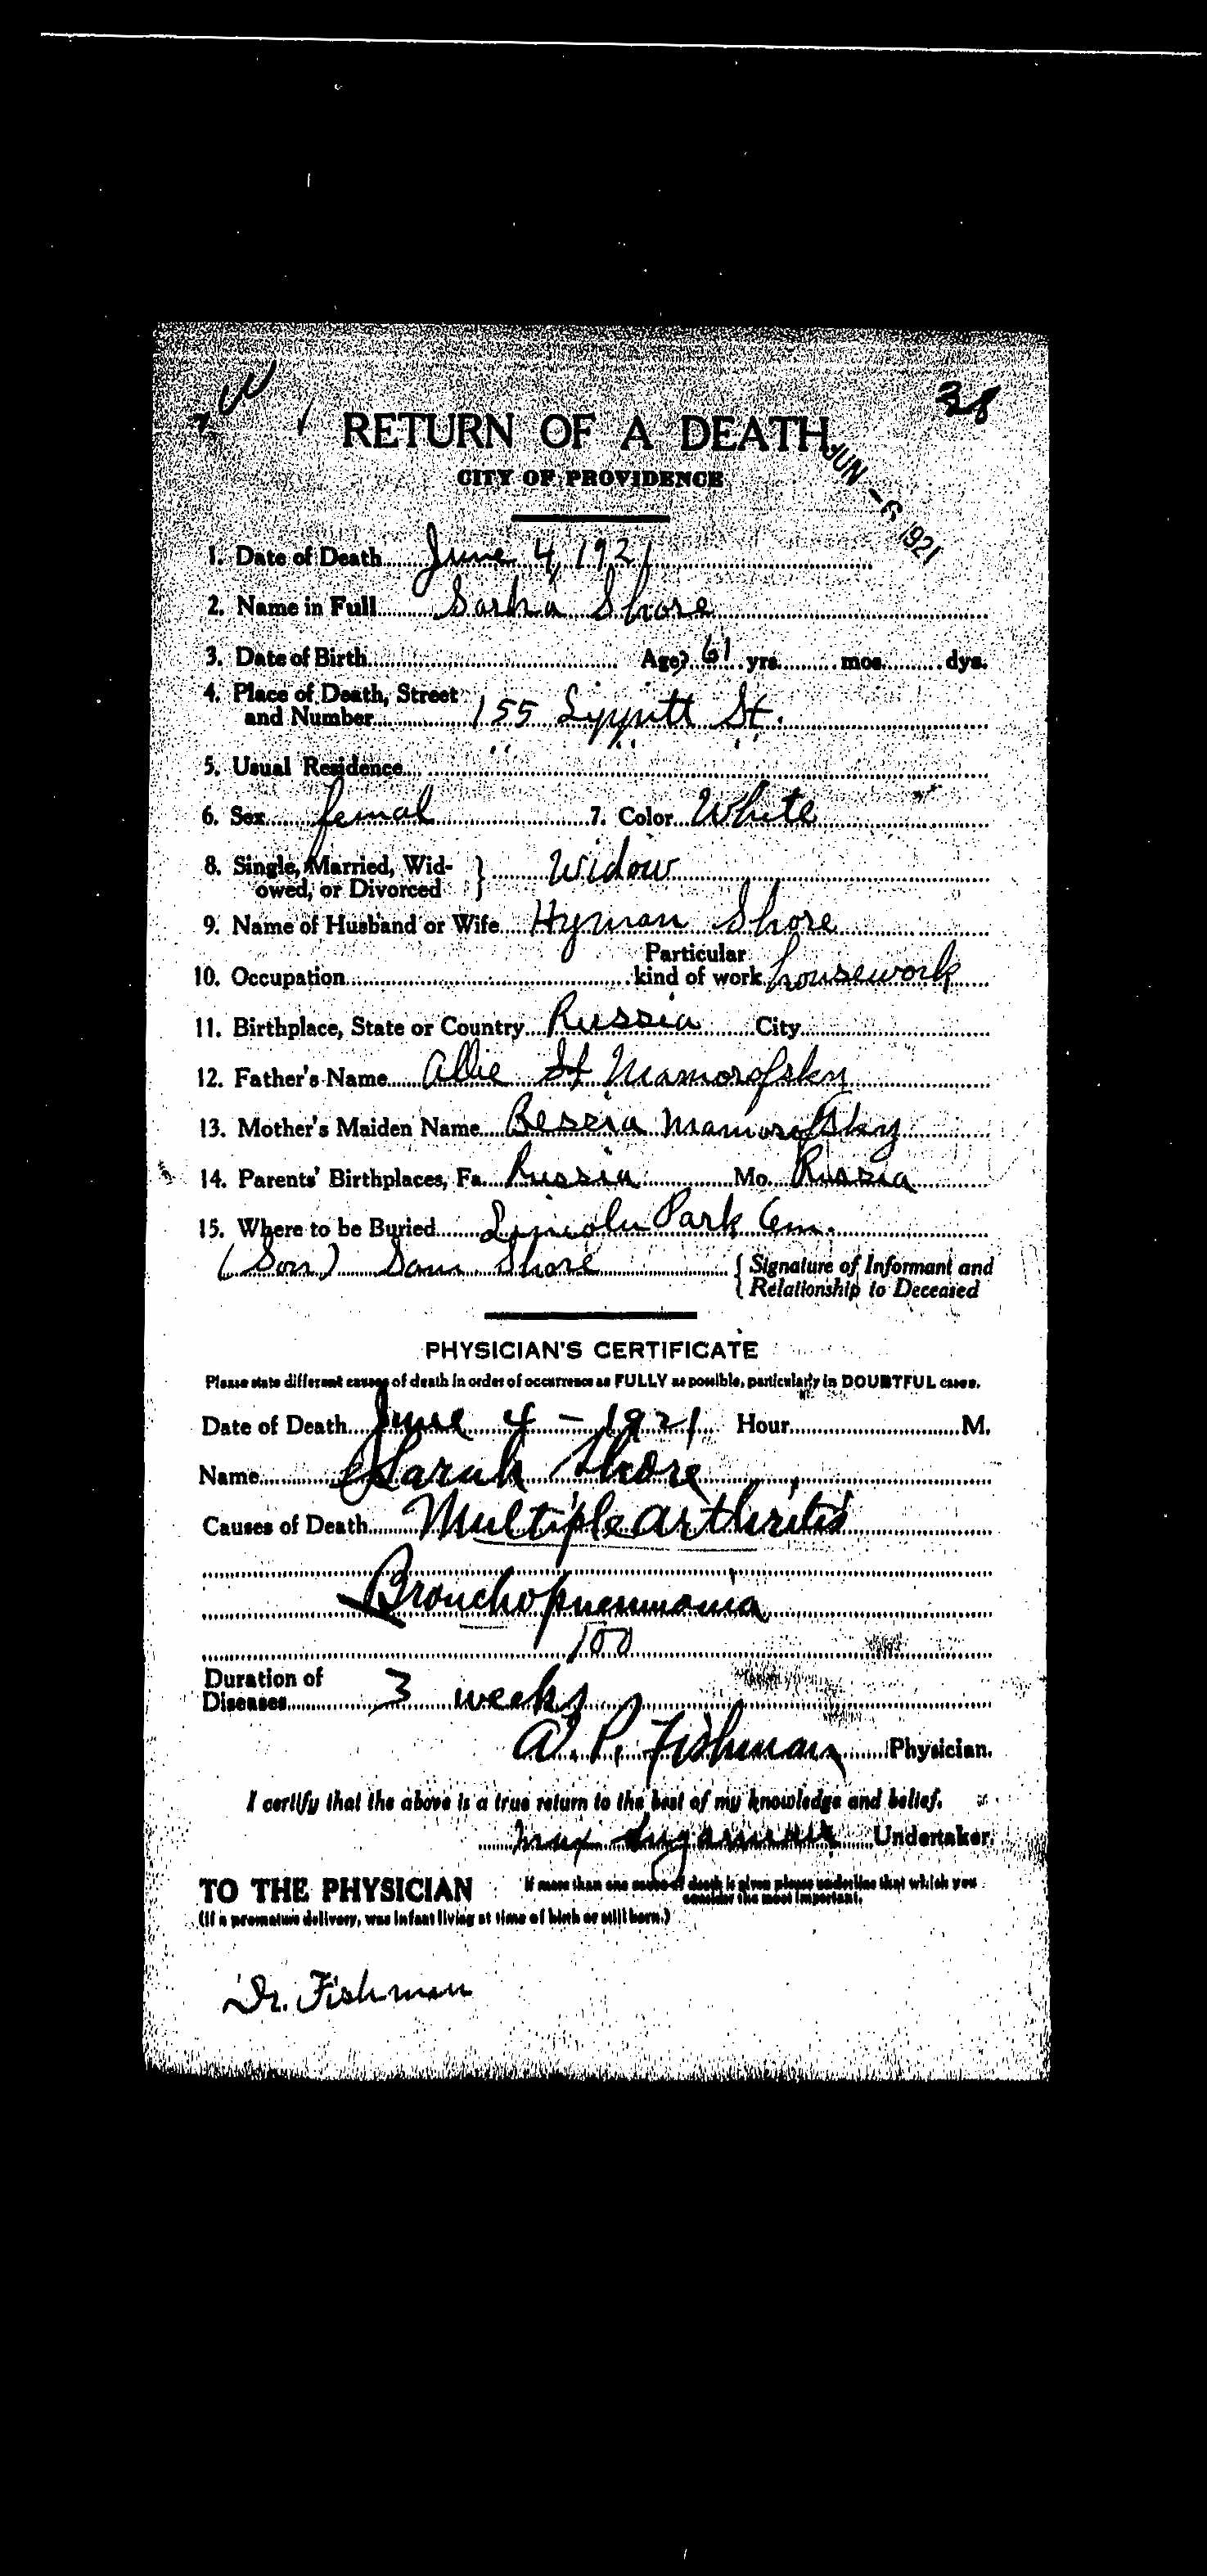 W 38
RETURN OF A DEATH
CITY OF PROVIDENCE
JUN -6 1921
1. Date of Death June 4, 1921
2. Name in Full Sarha Shore
3. Date of Birth Age? 61 yrs. mos. dys.
4. Place of Death, Street
and Number 155 Lippitt St.
5. Usual Residence " " "
6. Sex femal 7. Color White
8. Single, Married, Wid-
owed, or Divorced } Widow
9. Name of Husband or Wife Hyman Shore
Particular
10. Occupation kind of work housework
11. Birthplace, State or Country Russia City
12. Father's Name Allie Mamorofsky
13. Mother's Maiden Name Bessia Mamorofsky
14. Parents' Birthplaces, Fa. Russia Mo. Russia
15. Where to be Buried Lincoln Park Cem.
(Son) Sam Shore { Signature of Informant and
Relationship to Deceased
PHYSICIAN'S CERTIFICATE
Please state different causes of death in order of occurrence as FULLY as possible, particularly in DOUBTFUL cases.
Date of Death June 4 - 1921 Hour M.
Name Sarah Shore
Causes of Death Multiple arthritis
Bronchopneumonia
100
Duration of
Diseases 3 weeks
A. P. Fishman Physician.
I certify that the above is a true return to the best of my knowledge and belief.
Max Sugarman Undertaker.
TO THE PHYSICIAN If more than one cause of death is given please underline that which you
consider the most important.
(If a premature delivery, was infant living at time of birth or still born.)
Dr. Fishman